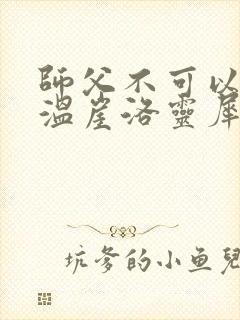 師父不可以
溫崖洛靈犀
坑爹的小魚兒